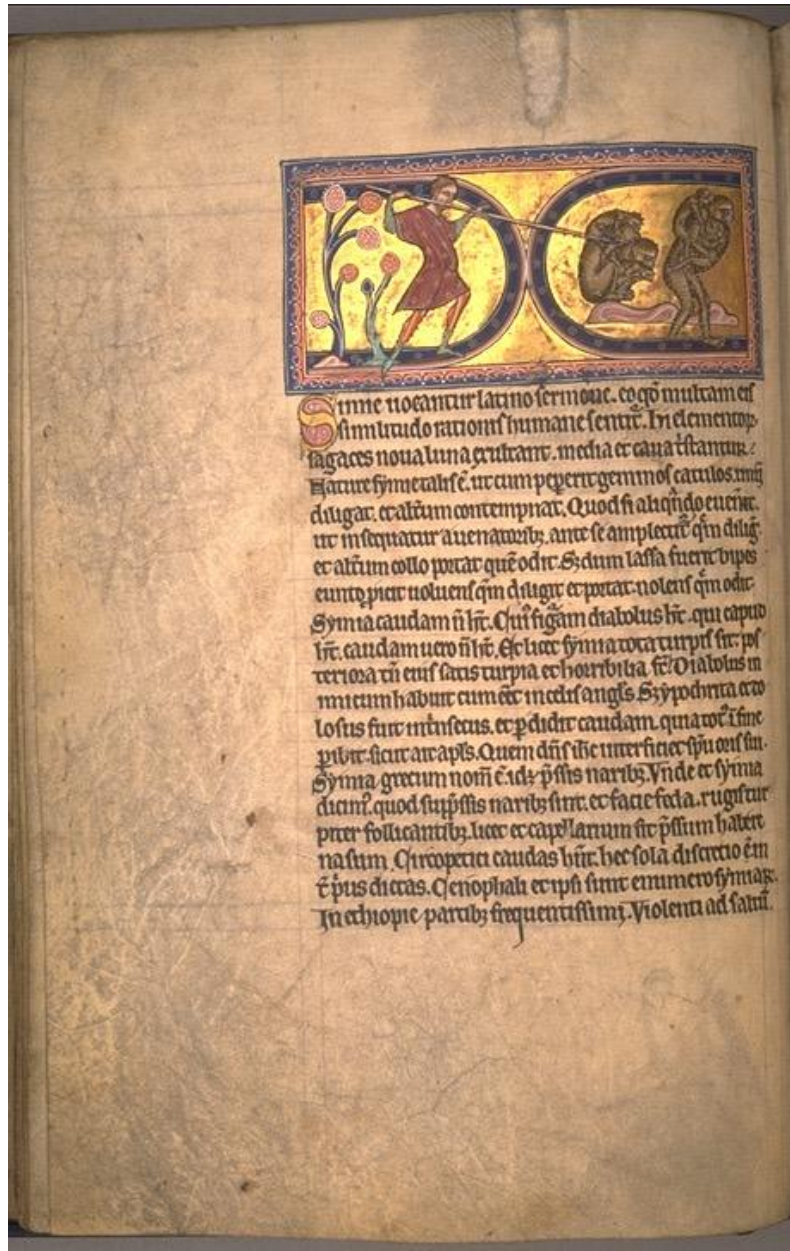 Simie uocantur latino sermone. eo qd̄ multam eis
similitudo rationis humane sentit᷑. In elementoꝝ
sagaces noua luna exultant. media et caua t̾stantur.
Nature symie talis ē. ut cum pepererit geminos catulos. unū
diligat. et alt̾um contempnat. Quod si aliqn̄do euen̾it.
ut insequatur a uenatoribꝫ. ante se amplectit᷑ qm̄ dilig̾.
et alt̾um collo portat quē odit. Sꝫ dum lassa fuerit bipes
eundo ꝓicit uoluens qm̄ diligit et portat nolens qm̄ odit.
Symia caudam n̄ ht̄. Cui᷒ figᵃm diabolus ht̄. qui capud
ht̄. caudam uero n̄ ht̄. Et licet symia tota turpis sit. pos
teriora tn̄ eius satis turpia et horribilia st̄. Diabolus in
inicium habuit cum eēt in celis angl̄s. Sꝫ ypochrita et do
losus fuit int̾insecus. et ꝑdidit caudam. quia tot᷒ ī fine
ꝑibit. sicut ait apl̄s. Quem dn̄s ih̄c interficiet sp̄u oris sui.
Symia grecum nom̄ ē. idꝫ p̄ssis naribꝫ. Vnde et symia
dicim᷒. quod sup̄ssis naribꝫ sint. et facie feda. rugis tur
piter follicantibꝫ. licet et capellarum sit p̄ssum habere
nasum. Circopetici caudas hn̄t. hec sola discretio ē in
t̾ p̾us dictas. Cenophali et ipsi sunt e numero symiaꝝ.
In ethiopie partibꝫ frequentissimi. Violenti ad saltū.